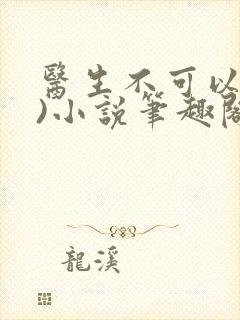 醫生不可以
)小說筆趣閣
龍溪